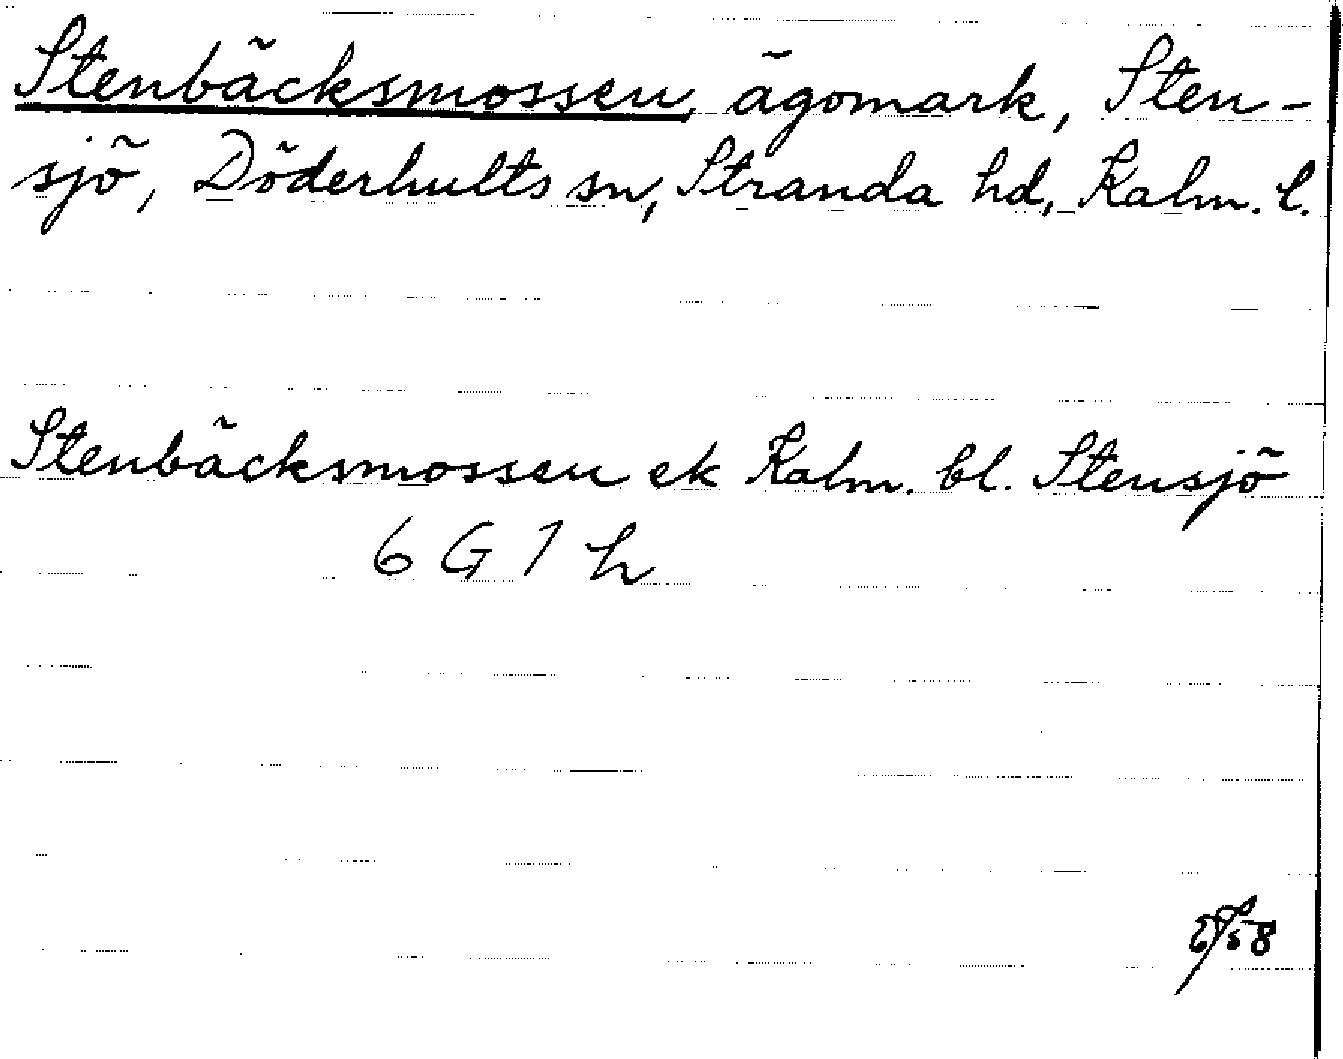 Stenbäcksmossen, ägomark, Sten-
sjö, Döderhults sn, Stranda hd, Kalm. l.
Stenbäcksmossen ek Kalm. bl. Stensjö
6 G 7 h